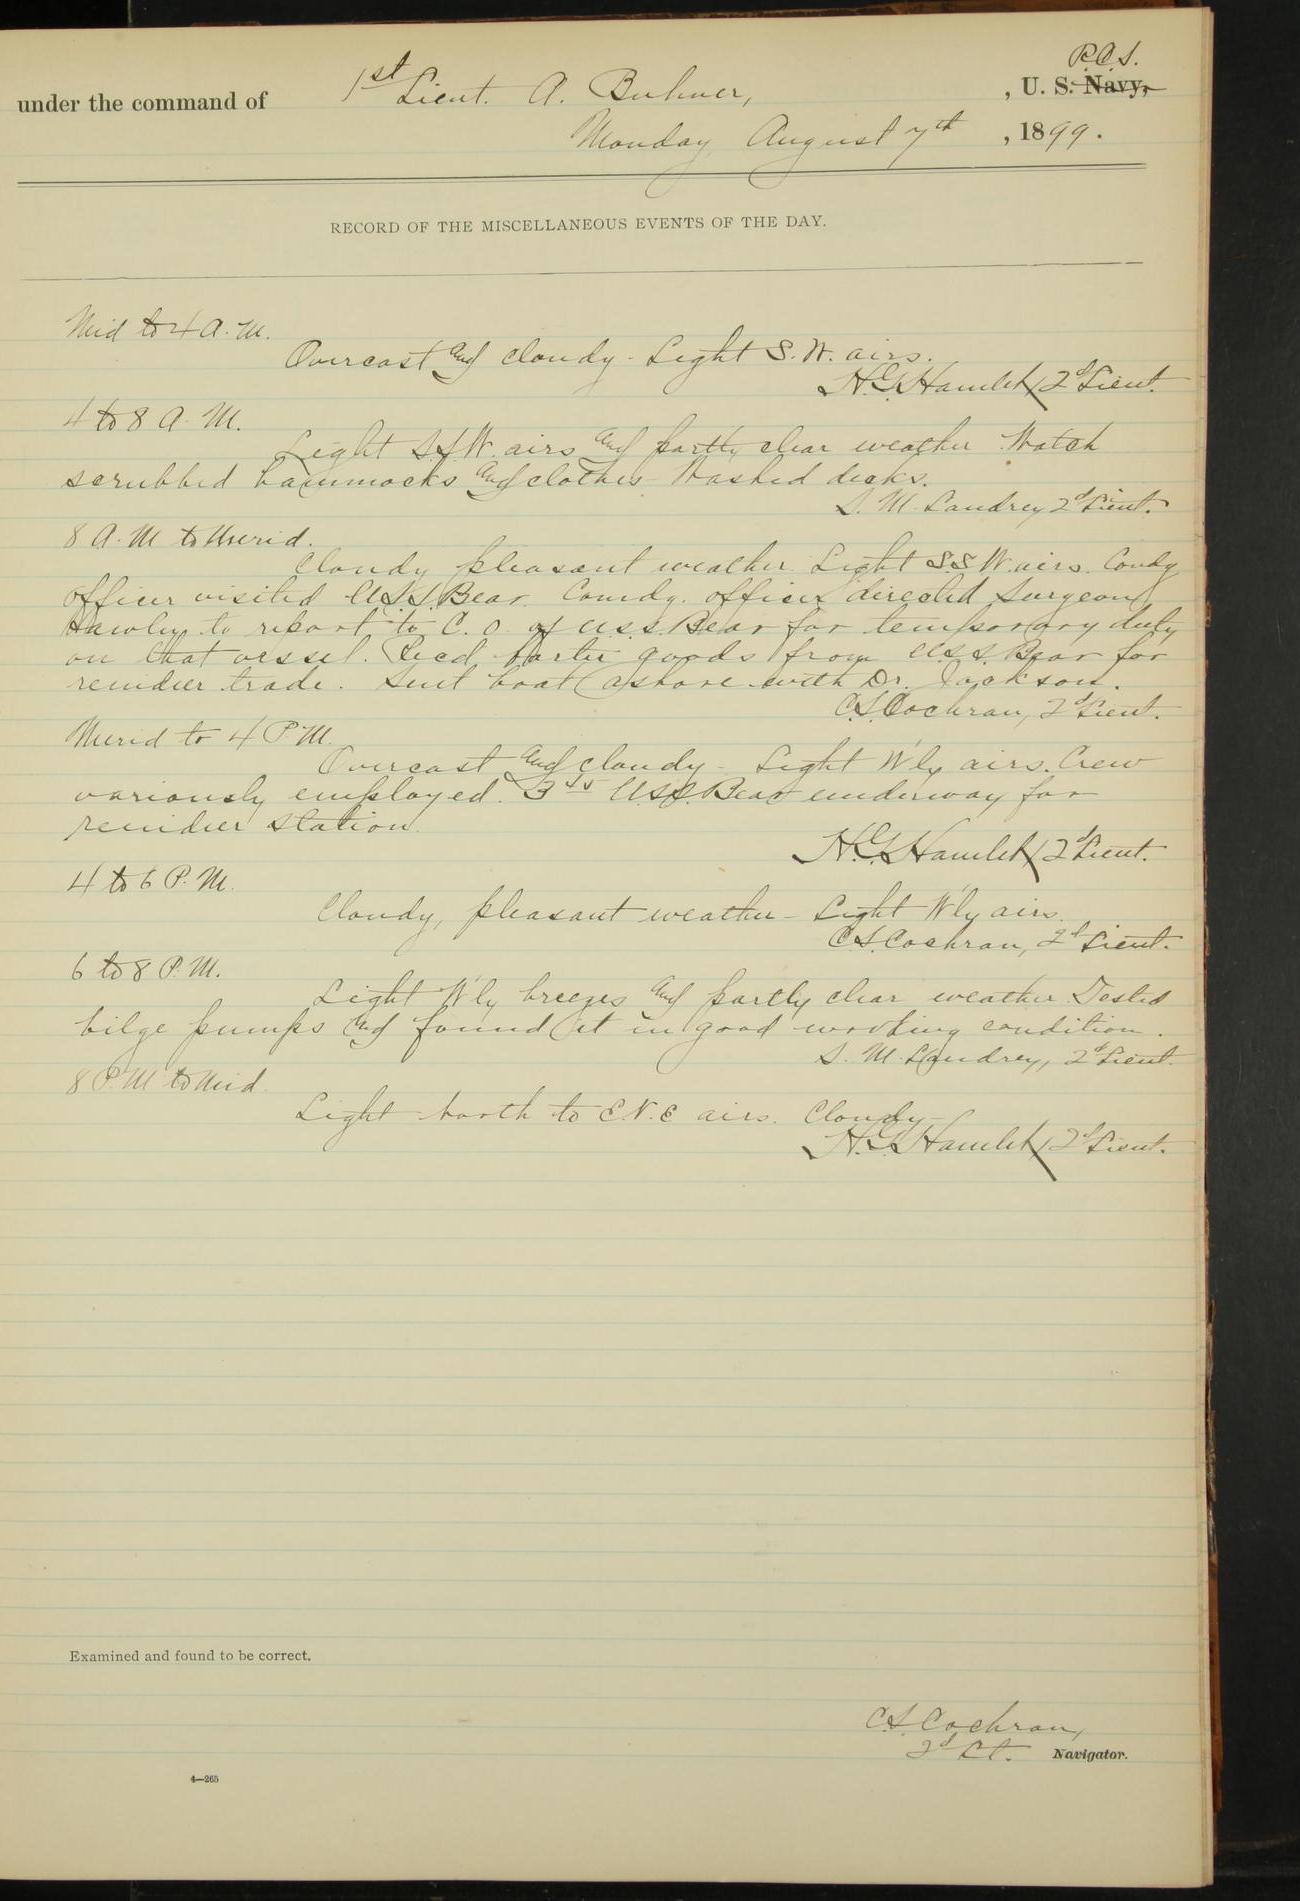 R.C.S.
under the command of 1st Lieut. A. Buhner, , U. S. Navy,
Monday August 7th , 1899.
RECORD OF THE MISCELLANEOUS EVENTS OF THE DAY.
Mid to 4 A. M.
Overcast and cloudy - Light S. W. airs.
H.G. Hamlet 2d Lieut.
4 to 8 A. M.
Light S.S.W. airs and partly clear weather Watch
scrubbed hammocks and clothes - Washed decks.
S. M. Landrey 2d Lieut.
8 A. M to Merid.
Cloudy pleasant weather. Light S.S.W. airs. Comdg
officer visited U.S.S. Bear. Comdg. officer directed Surgeon
Hawley to report to C. O of U.S.S. Bear for temporary duty
on that vessel. Recd barter goods from U.S.S. Bear for
reindeer trade. Sent boat ashore with Dr. Jackson.
C.S. Cochran, 2d Lieut.
Merid to 4 P M.
Overcast and cloudy - Light W'ly airs. Crew
variously employed. U.S.S. Bear underway for
reindeer station.
H.G. Hamlet 2d Lieut.
4 to 6 P. M.
Cloudy, pleasant weather - Light W'ly airs.
C.S. Cochran, 2d Lieut.
6 to 8 P. M.
Light W'ly breezes and partly clear weather Tested
bilge pumps and found it in good working condition.
S. M. Landrey, 2d Lieut.
8 P. M to Mid.
Light North to E N. E airs. Cloudy -
H.G. Hamlet 2d Lieut.
Examined and found to be correct.
C.S. Cochran,
2d Lt. Navigator.
4—265